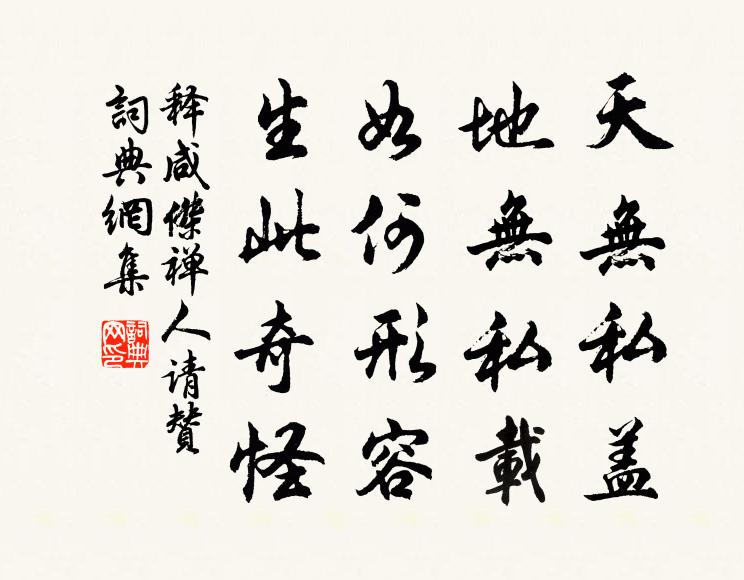 天無私盖
地無私載
如何形容
生此奇怪
释咸傑禅人请赞
詞典網集
詞典網印